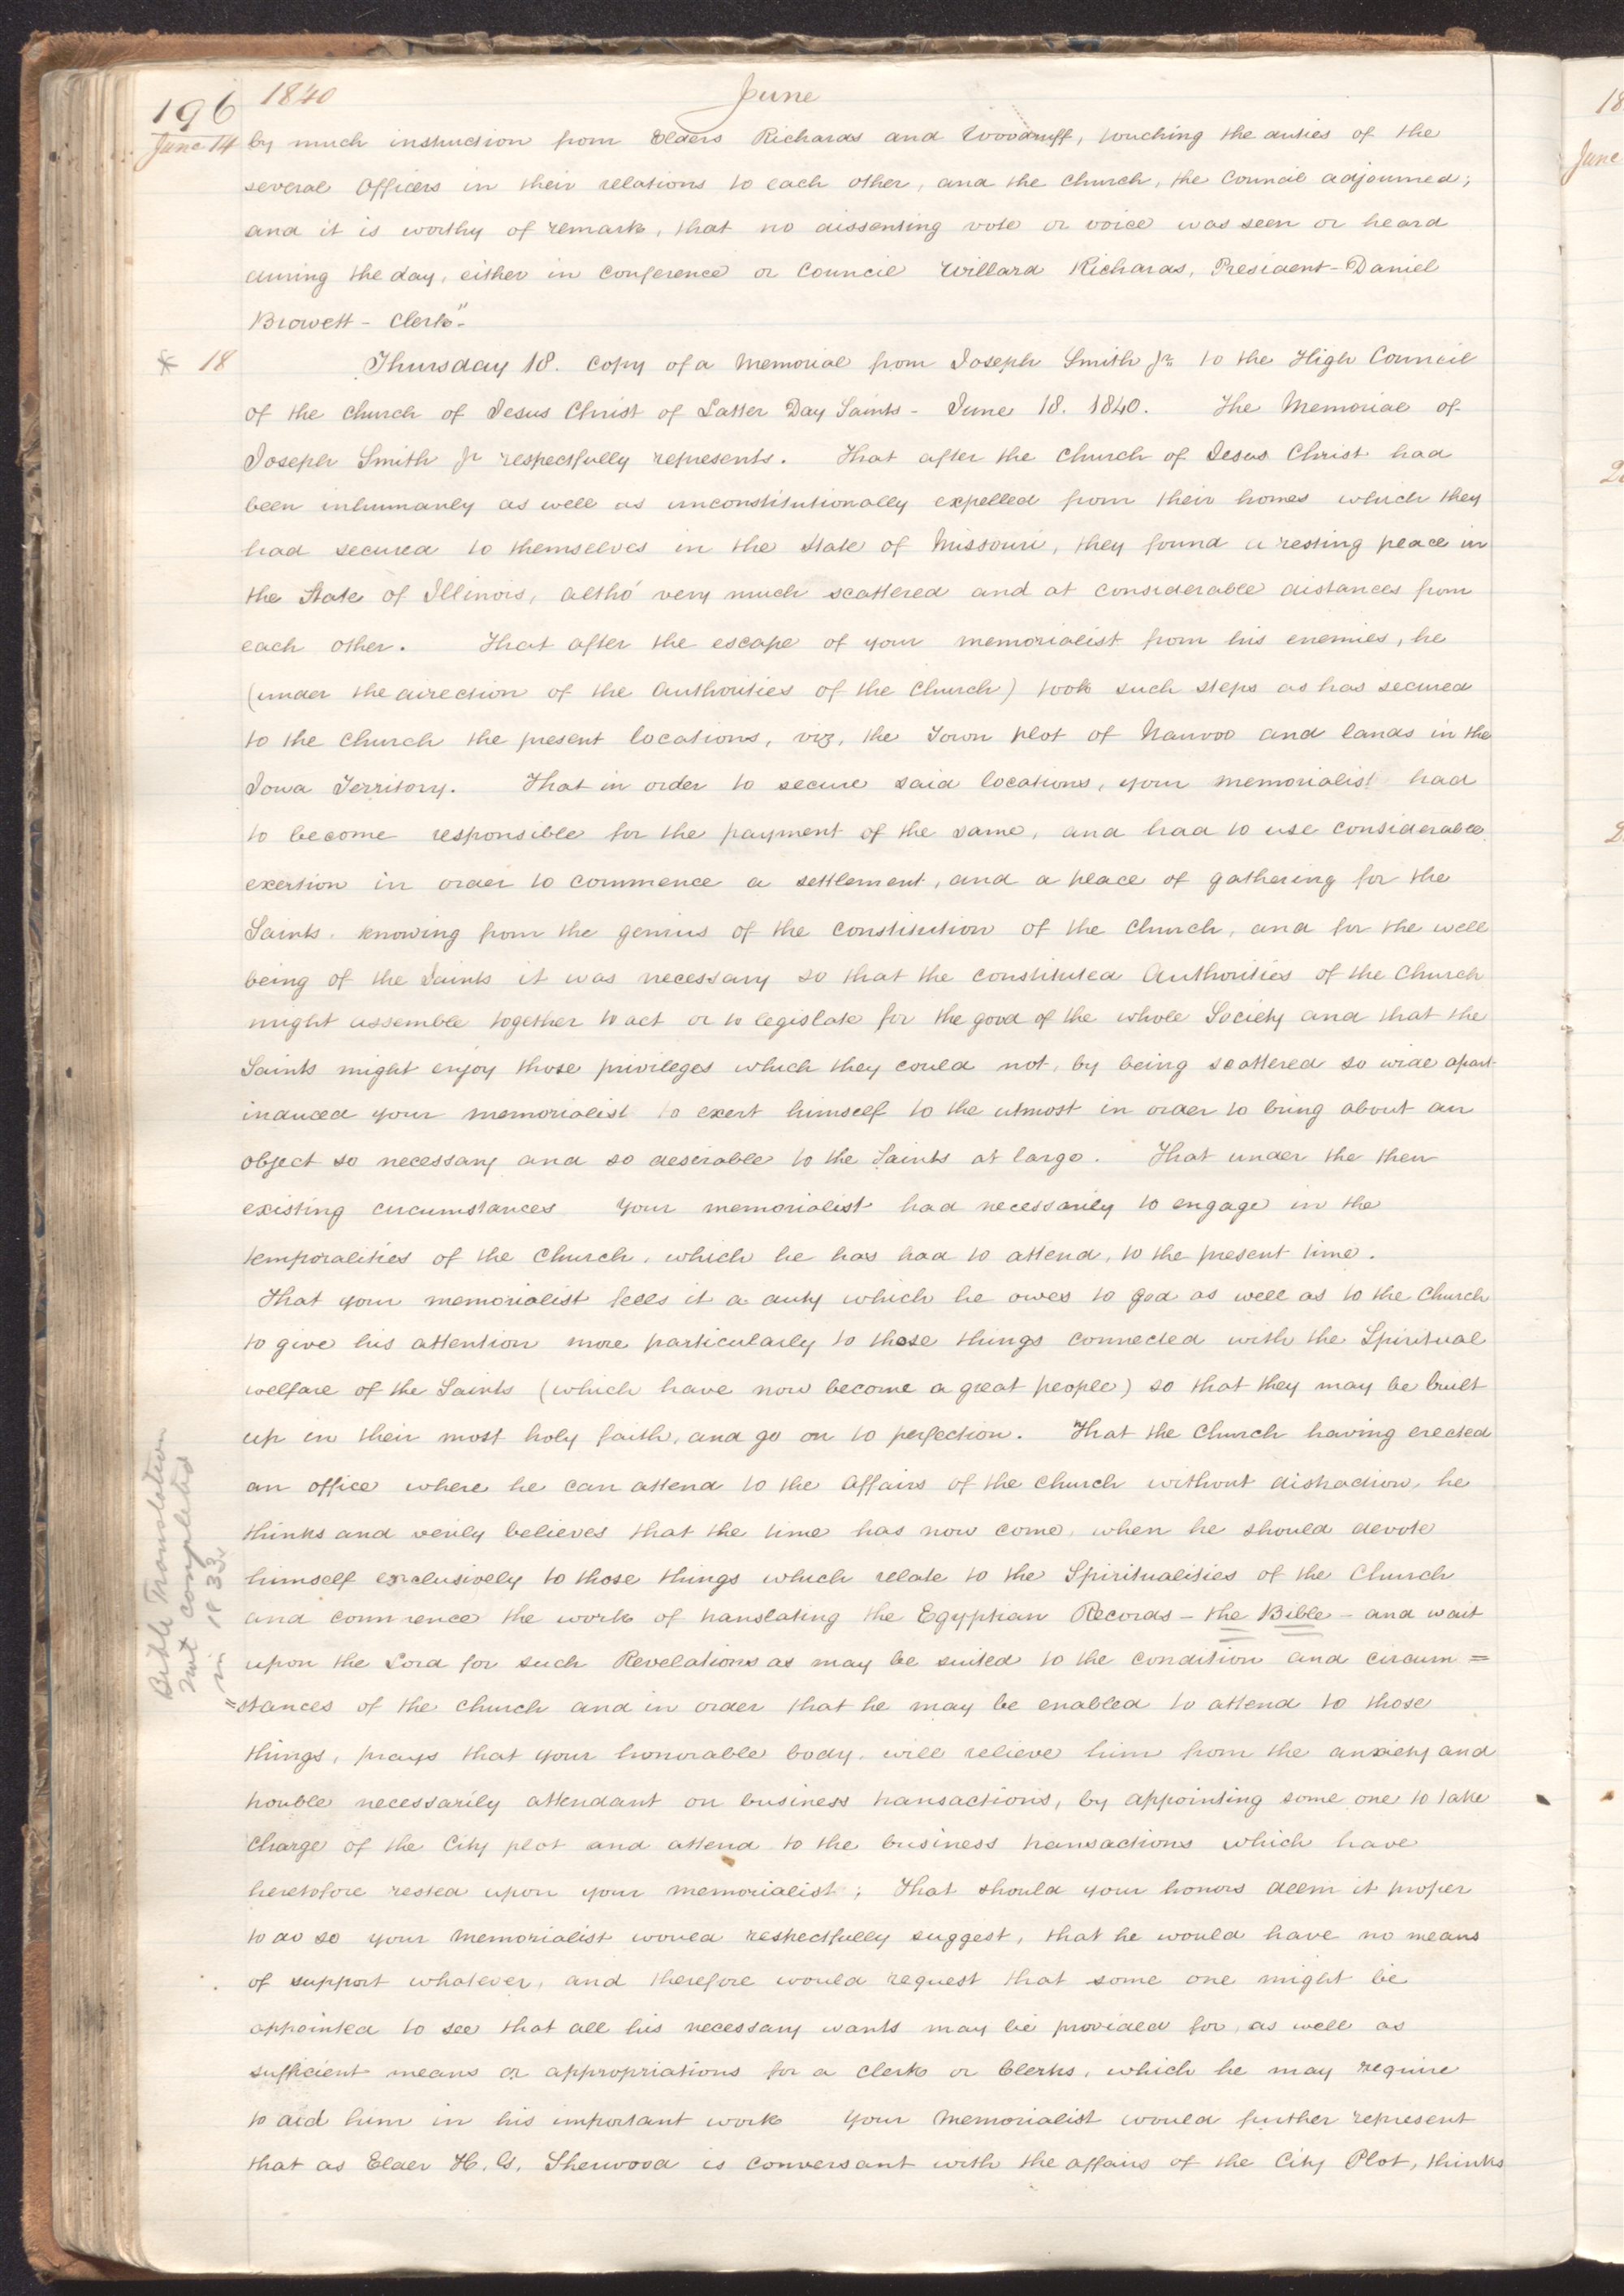 196 1840 June
June 14 by much instruction from Elders Richards and Woodruff, touching the duties of the
several Officers in their relations to each other, and the church, the Council adjourned;
and it is worthy of remark, that no dissenting vote or voice was seen or heard
during the day, either in conference or Council Willard Richards, President - Daniel
Browett - Clerk"-
* 18 Thursday 18. copy of a Memorial from Joseph Smith Jr. to the High Council
of the church of Jesus Christ of Latter Day Saints - June 18. 1840. The Memorial of
Joseph Smith Jr respectfully represents. That after the Church of Jesus Christ had
been inhumanly as well as unconstitutionally expelled from their homes which they
had secured to themselves in the State of Missouri, they found a resting peace in
the State of Illinois, altho' very much scattered and at considerable distances from
each other. That after the escape of your memorialist from his enemies, he
(under the direction of the Authorities of the Church) took such steps as has secured
to the church the present locations, viz, the Town plot of Nauvoo and lands in the
Iowa Territory. That in order to secure said locations, your memorialist had
to become responsible for the payment of the same, and had to use considerable
exertion in order to commence a settlement, and a place of gathering for the
Saints. knowing from the genius of the constitution of the Church, and for the well
being of the Saints it was necessary so that the constituted Authorities of the Church
might assemble together to act or to legislate for the good of the whole Society and that the
Saints might enjoy those privileges which they could not, by being scattered so wide apart
induced your memorialist to exert himself to the utmost in order to bring about an
object so necessary and so desirable to the Saints at large. That under the then
existing circumstances your memorialist had necessarily to engage in the
temporalities of the Church, which he has had to attend, to the present time.
That your memorialist feels it a duty which he owes to God as well as to the Church
to give his attention more particularly to those things connected with the Spiritual
welfare of the Saints (which have now become a great people) so that they may be built
up in their most holy faith, and go on to perfection. That the Church having erected
an office where he can attend to the affairs of the church without distraction, he
thinks and verily believes that the time has now come, when he should devote
himself exclusively to those things which relate to the Spiritualities of the Church
and commence the work of translating the Egyptian Records - the Bible - and wait
upon the Lord for such Revelations as may be suited to the condition and circum=
=stances of the church and in order that he may be enabled to attend to those
things, prays that your honorable body, will relieve him from the anxiety and
trouble necessarily attendant on business transactions, by appointing some one to take
charge of the City plot and attend to the business transactions which have
heretofore rested upon your memorialist; That should your honors deem it proper
to do so your memorialist would respectfully suggest, that he would have no means
of support whatever, and therefore would request that some one might be
appointed to see that all his necessary wants may be provided for, as well as
sufficient means or appropriations for a clerk or Clerks, which he may require
to aid him in his important work your Memorialist would further represent
that as Elder H. G. Sherwood is conversant with the affairs of the City Plot, thinks
Bible Translation
not completed
in 1833
18
June